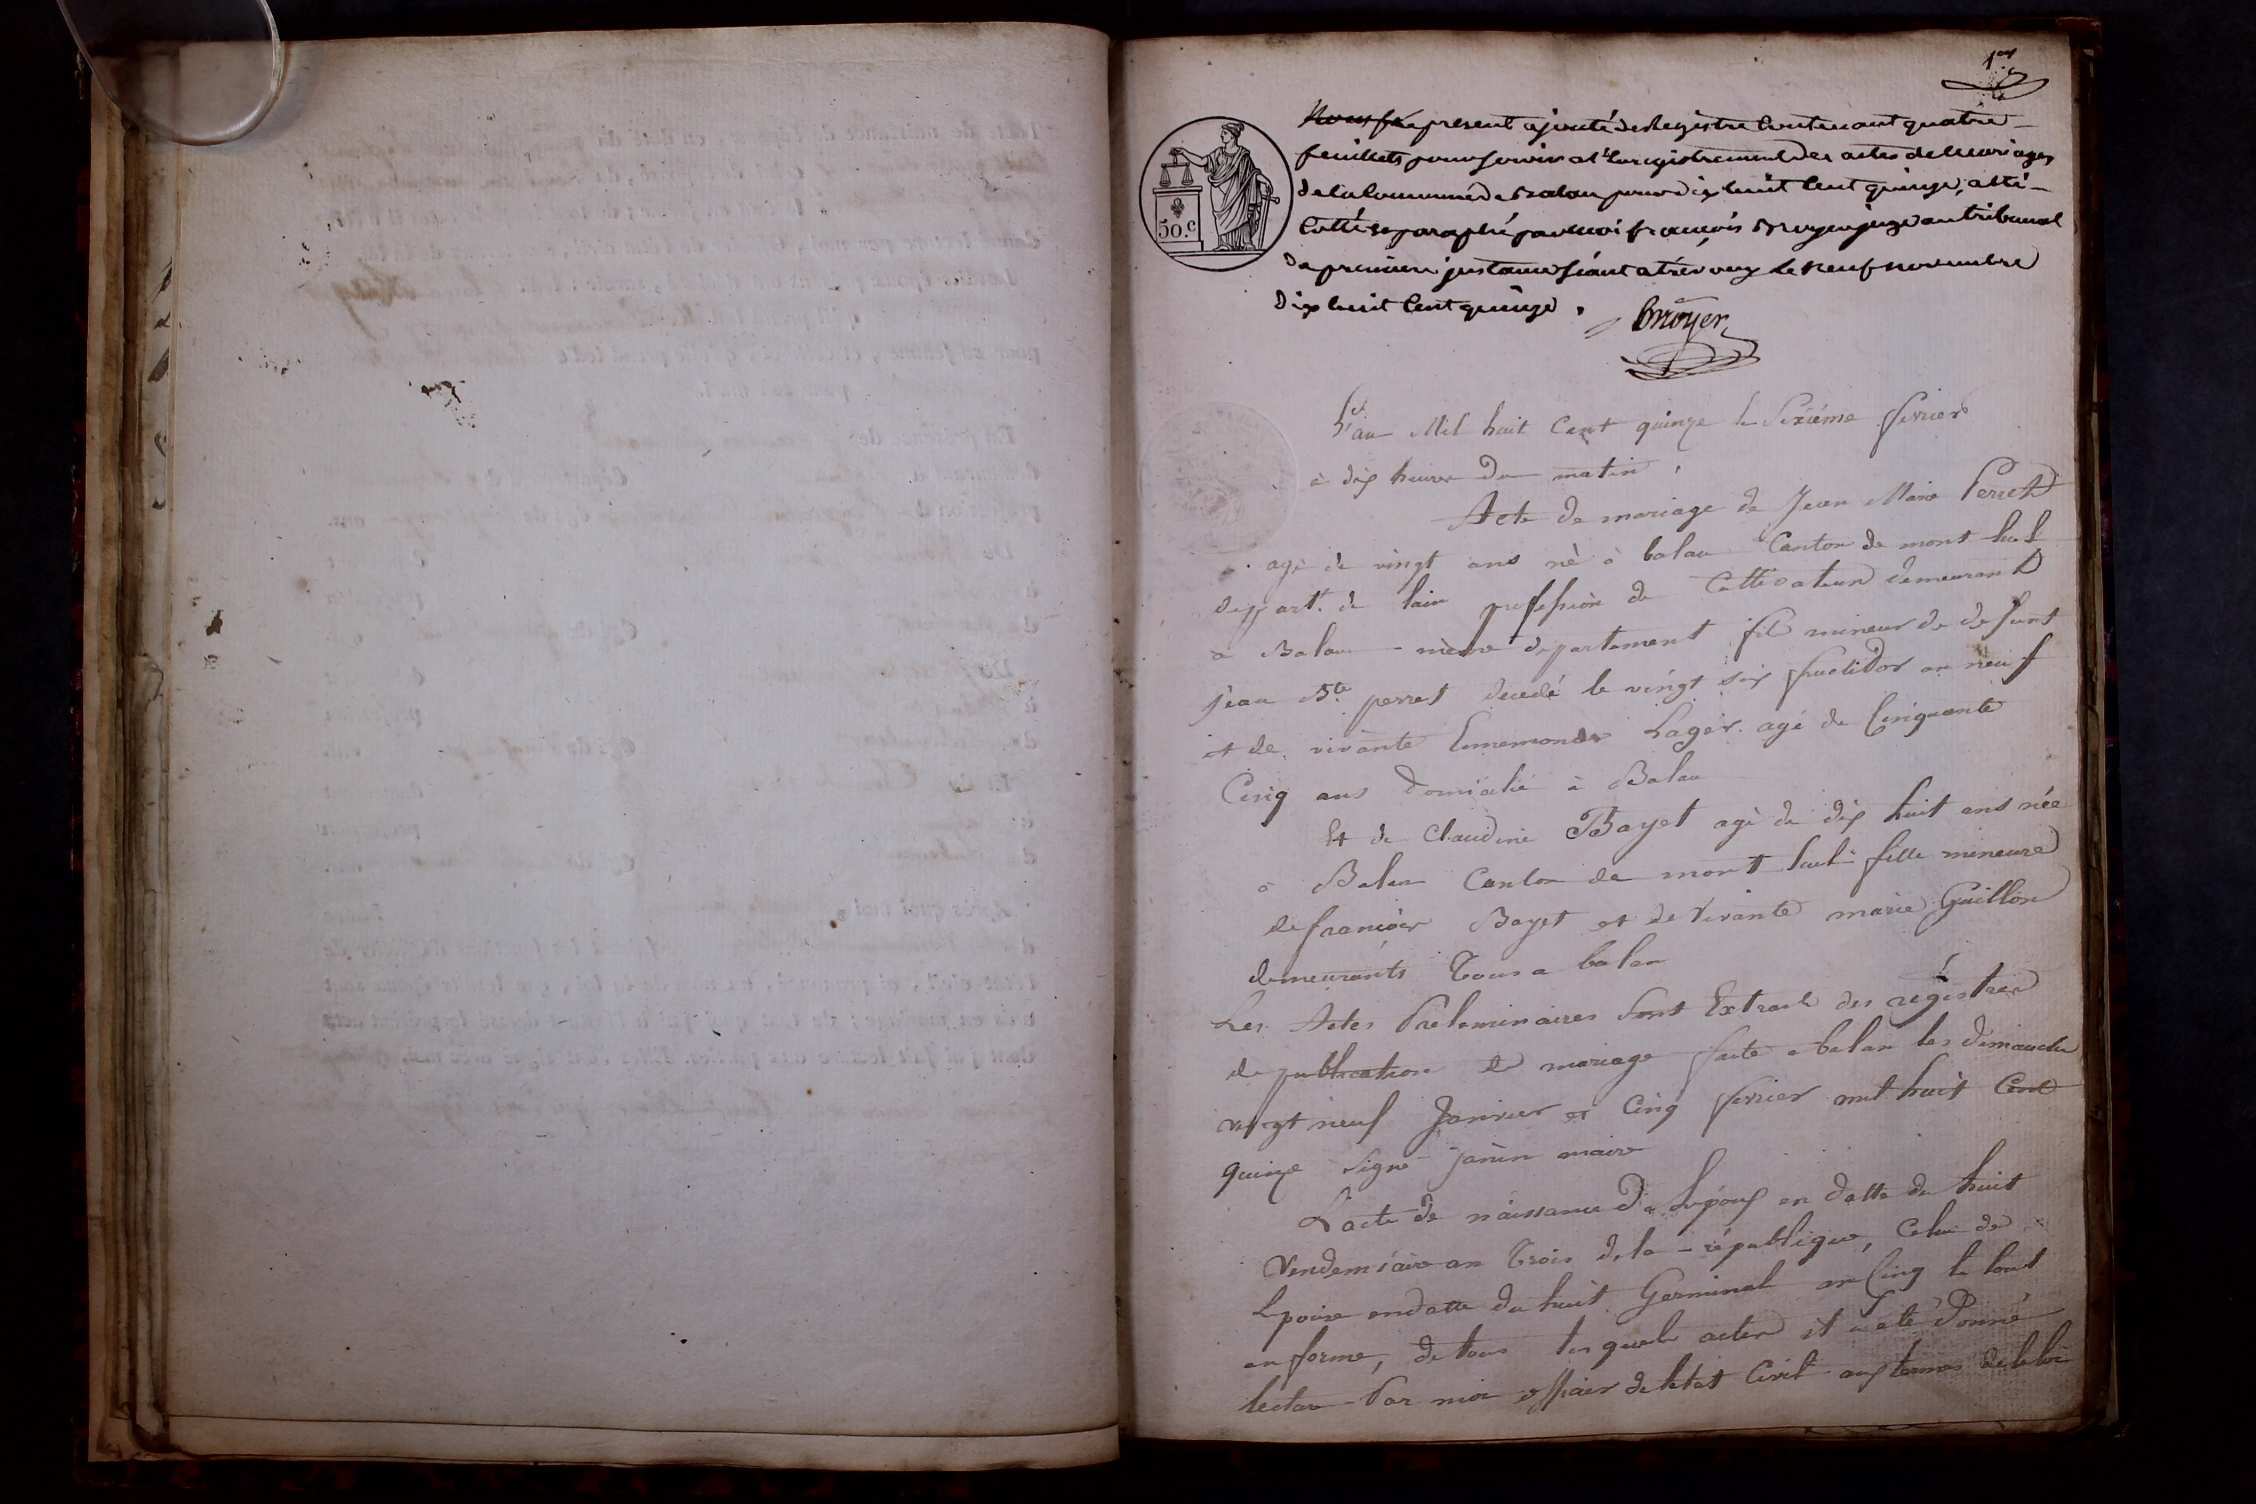 1er
present ajouté de Registre Contenant quatre
feuillets pour servir a l'Enregistrement des actes de Mariages
de la Commune de Balan pour dix huit Cent quinze, a été
Cotté et paraphé par moi françois Bruyer juge au tribunal
de premiere instance séant a trévoux le neuf novembre
dix huit Cent quinze.
Bruyer
50.c
L'an Mil huit Cent quinze le Sixiéme fevrier
à dix heures du matin,
Acte de mariage de Jean Marie Perret
agé de vingt ans né à balan Canton de mont luel
depart.t de lain profession de Cultivateur demeurant
a Balan même departement fils mineur de defunt
jean B.te perret decedé le vingt six fructidor an neuf
et de vivante Ennemonde Lager agé de Cinquante
Cinq ans domicilié à Balan
Et de Claudine Bayet agé de dix huit ans née
à Balan Canton de mont luel fille mineure
de françois Bayet et de Vivante marie Guillon
demeurants Tous a balan
Les Actes Preleminaires Sont Extrait des régistres
de publication de mariage faite a balan les dimanche
vingt neuf Janvier et Cinq fevrier mil huit Cent
quinze signé janin maire
L'acte de naissance De Lepoux en datte du huit
Vendemiaire an Trois de la république, Celui de
Lpouse en datte du huit Germinal an Cinq le tout
en forme, de tous les quels actes il a été Donné
lecture Par moi officier de letat Civil aux termes de la loi